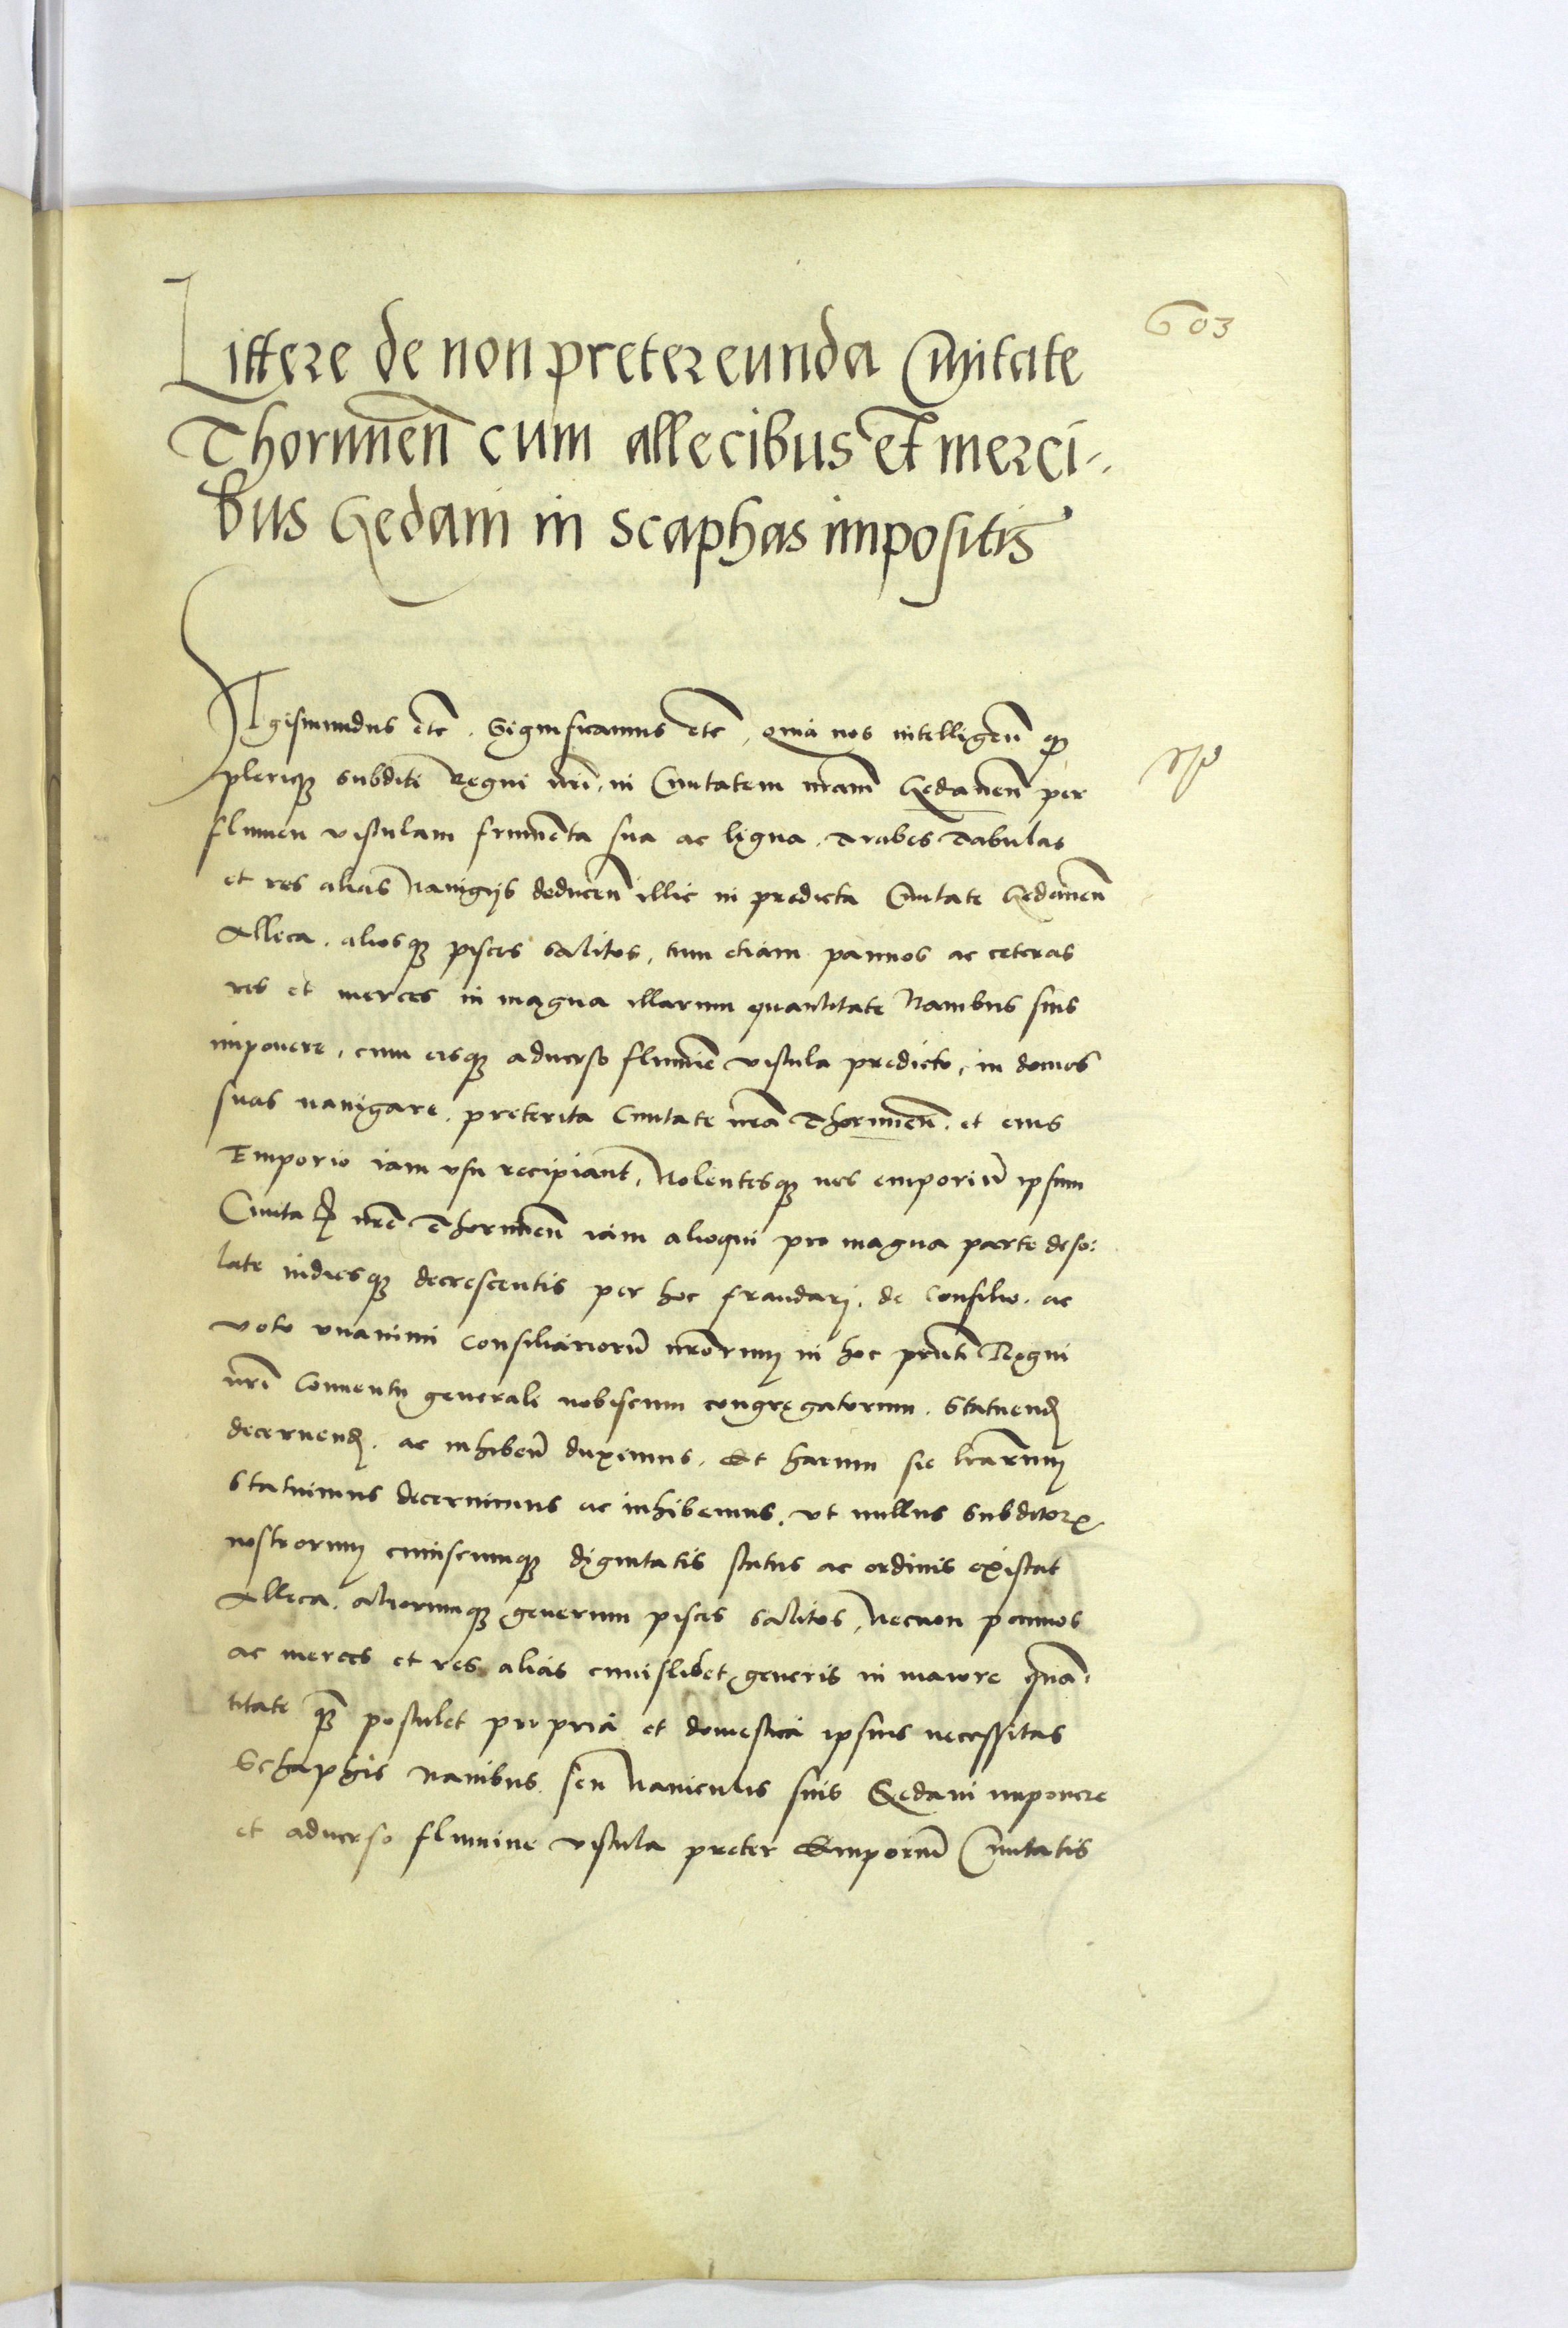 603
Littere de non pretereunda Civitate
Thorunen̄ cum allecibus et merci-
bus Gedani in scaphas impositis
Sigismundus etc. Significamus etc. quia nos intelligen̄ qꝫ
pleriqꝫ subditi Regni nrī, in Civitatem nram̄ Gedanen̄ per
flumen vistulam frumēta sua ac ligna, Trabes Tabulas
et res alias Navigijs deducen̄ illic in predicta Civitate Gedanen̄
Alleca, aliosqꝫ pisces salitos, tum etiam pannos ac ceteras
res et merces in magna illarum quantitate Navibus suis
imponere, cum eisqꝫ adverso flumīe vistula predicto, in domos
suas navigare, preterita Civitate nrā Thorunen̄, et eius
Emporio iam usu recipiant̄, Nolentesqꝫ nos emporiū ipsum
Civitatꝭ nrē Thorunen̄ iam alioqui pro magna parte deso:
late indiesqꝫ decrescentis per hoc fraudari, de Consilio, ac
voto unanimi consiliariorū nrōrum in hoc prnti Regni
nrī Conventu generale nobiscum congregatorum, Statuend̄
decernend̄, ac inhiben̄ duximus, Et harum sic lrārum
Statuimus decernimus ac inhibemus, ut nullus subditorꝝ
nostrorum cuiuscumqꝫ dignitatis status ac ordinis existat
Alleca, aliorumqꝫ generum pisces salitos, Necnon pannos
ac merces et res alias cuiuslibet generis in maiore quā-
titate qꝫ postulet propria et domestica ipsius necessitas
Schaphis navibus seu Naviculis suis Gedani imponere
et adverso flumine vistula preter Emporiū Civitatis